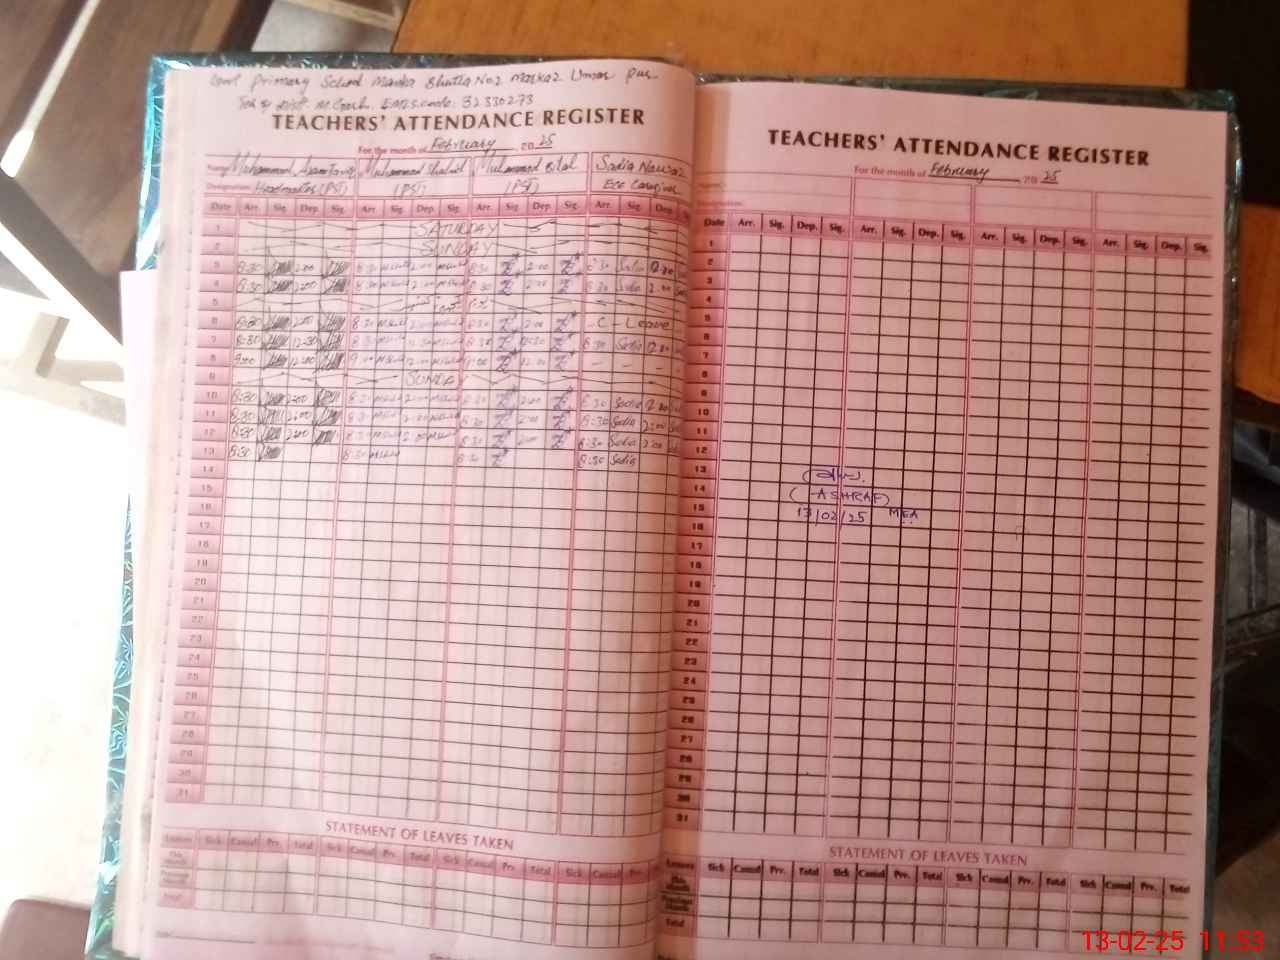 Govt primary School Manka Bhutta No2 Markaz Umar Pur
Teh & Distt. M.Garh. EMIS code: 32330273
TEACHERS' ATTENDANCE REGISTER
For the month of February 2025
Name Muhammad Muhammad Muhammad Bilal Sadia Nawaz
Designation Headmaster (PST) (PST) (PST) ECE Caregiver
Date Arr. Sig. Dep. Sig. Arr. Sig. Dep. Sig. Arr. Sig. Dep. Sig. Arr. Sig. Dep.
1 SATURDAY
2 SUNDAY
3 8:30 2:00 8:30 2:00 8:30 2:00 8:30 Sadia 2:00
4 8:30 2:00 8:30 2:00 8:30 2:00 8:30 Sadia 2:00
5
6 8:30 2:00 8:30 2:00 8:30 2:00 C - Leave
7 8:30 12:30 8:30 12:30 8:30 12:30 8:30 Sadia
8 9:00 12:00 9:00 12:00 9:00 12:00 - - - -
9 SUNDAY
10 8:30 2:00 8:30 2:00 8:30 2:00 8:30 Sadia 2:00
11 8:30 2:00 8:30 2:00 8:30 2:00 8:30 Sadia 2:00
12 8:30 2:00 8:30 2:00 8:30 2:00 8:30 Sadia 2:00
13 8:30 8:30 8:30 8:30 Sadia
14
15
16
17
18
19
20
21
22
23
24
25
26
27
28
29
30
31
STATEMENT OF LEAVES TAKEN
Leaves Sick Casual Prv. Total Sick Casual Prv. Total Sick Casual Prv. Total Sick Casual Prv.
This Month
Previous Month
Total
TEACHERS' ATTENDANCE REGISTER
For the month of February 2025
Name
Designation
Date Arr. Sig. Dep. Sig. Arr. Sig. Dep. Sig. Arr. Sig. Dep. Sig. Arr. Sig. Dep. Sig.
1
2
3
4
5
6
7
8
9
10
11
12
13
14
15
16
17
18
19
20
21
22
23
24
25
26
27
28
29
30
31
(ASHRAF)
13/02/25 MEA
STATEMENT OF LEAVES TAKEN
Leaves Sick Casual Prv. Total Sick Casual Prv. Total Sick Casual Prv. Total Sick Casual Prv. Total
This Month
Previous Month
Total
13-02-25 11:53